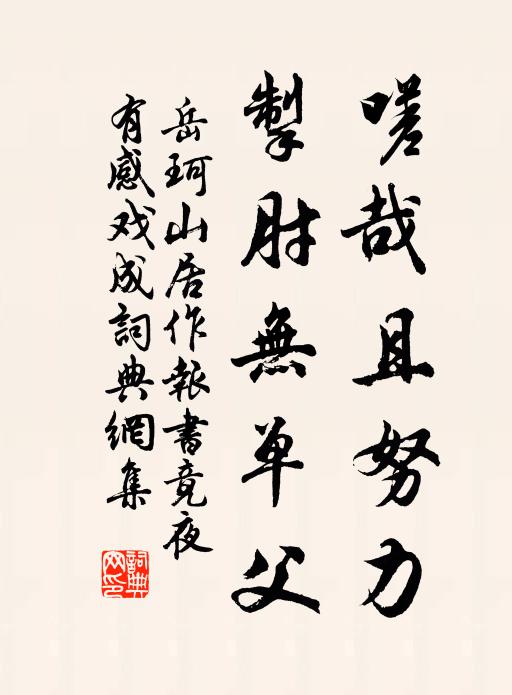 嗟哉且努力
掣肘無单父
岳珂山居作報書竟夜
有感戏成詞典網集
詞典網印